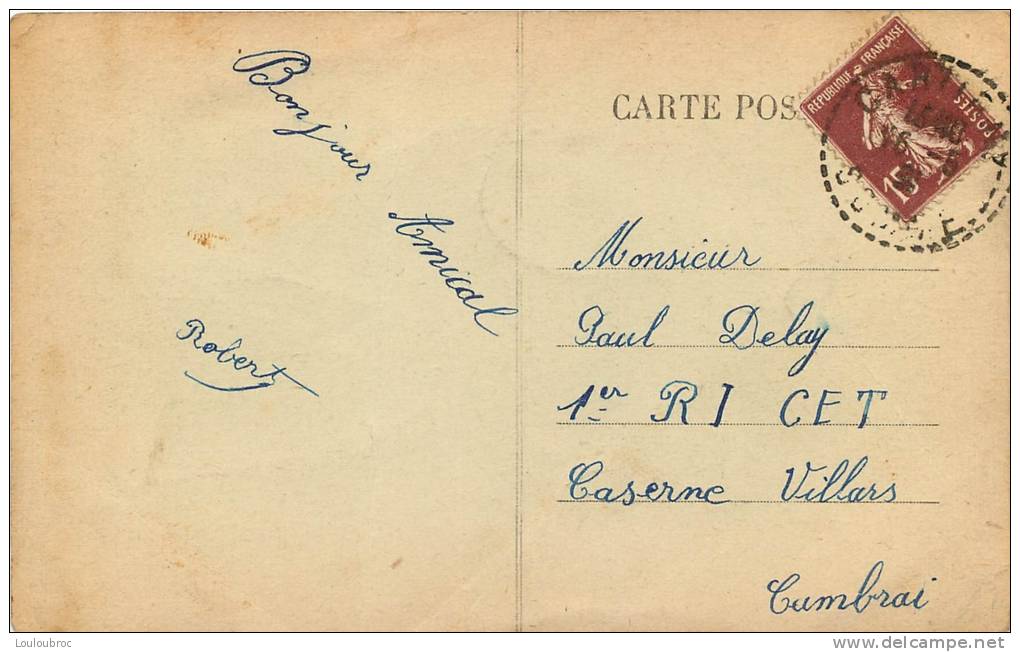 Bonjour
Amical
Robert
CARTE POS
REPUBLIQUE FRANÇAISE
POSTES
15
Monsieur
Paul Delay
1er R I C E T
Caserne Villars
Cambrai
Louloubroc
www.delcampe.net